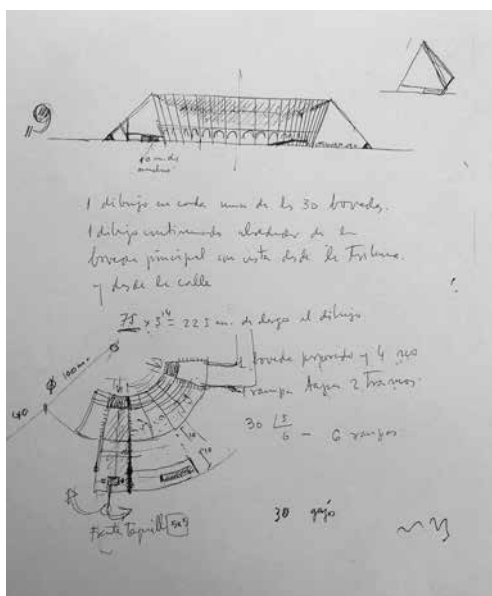 9
10 m. de
1 dibujo en cada una de las 30 bovedas.
1 dibujo continuado alrededor de la
boveda principal con vista desde la Tribuna.
y desde la calle
75 x 3'14 = 225 m. de largo el dibujo
100 m.
40
boveda y 4
rampa 2 Tramos.
30 5
6 - 6 rampas
10
30 gajos